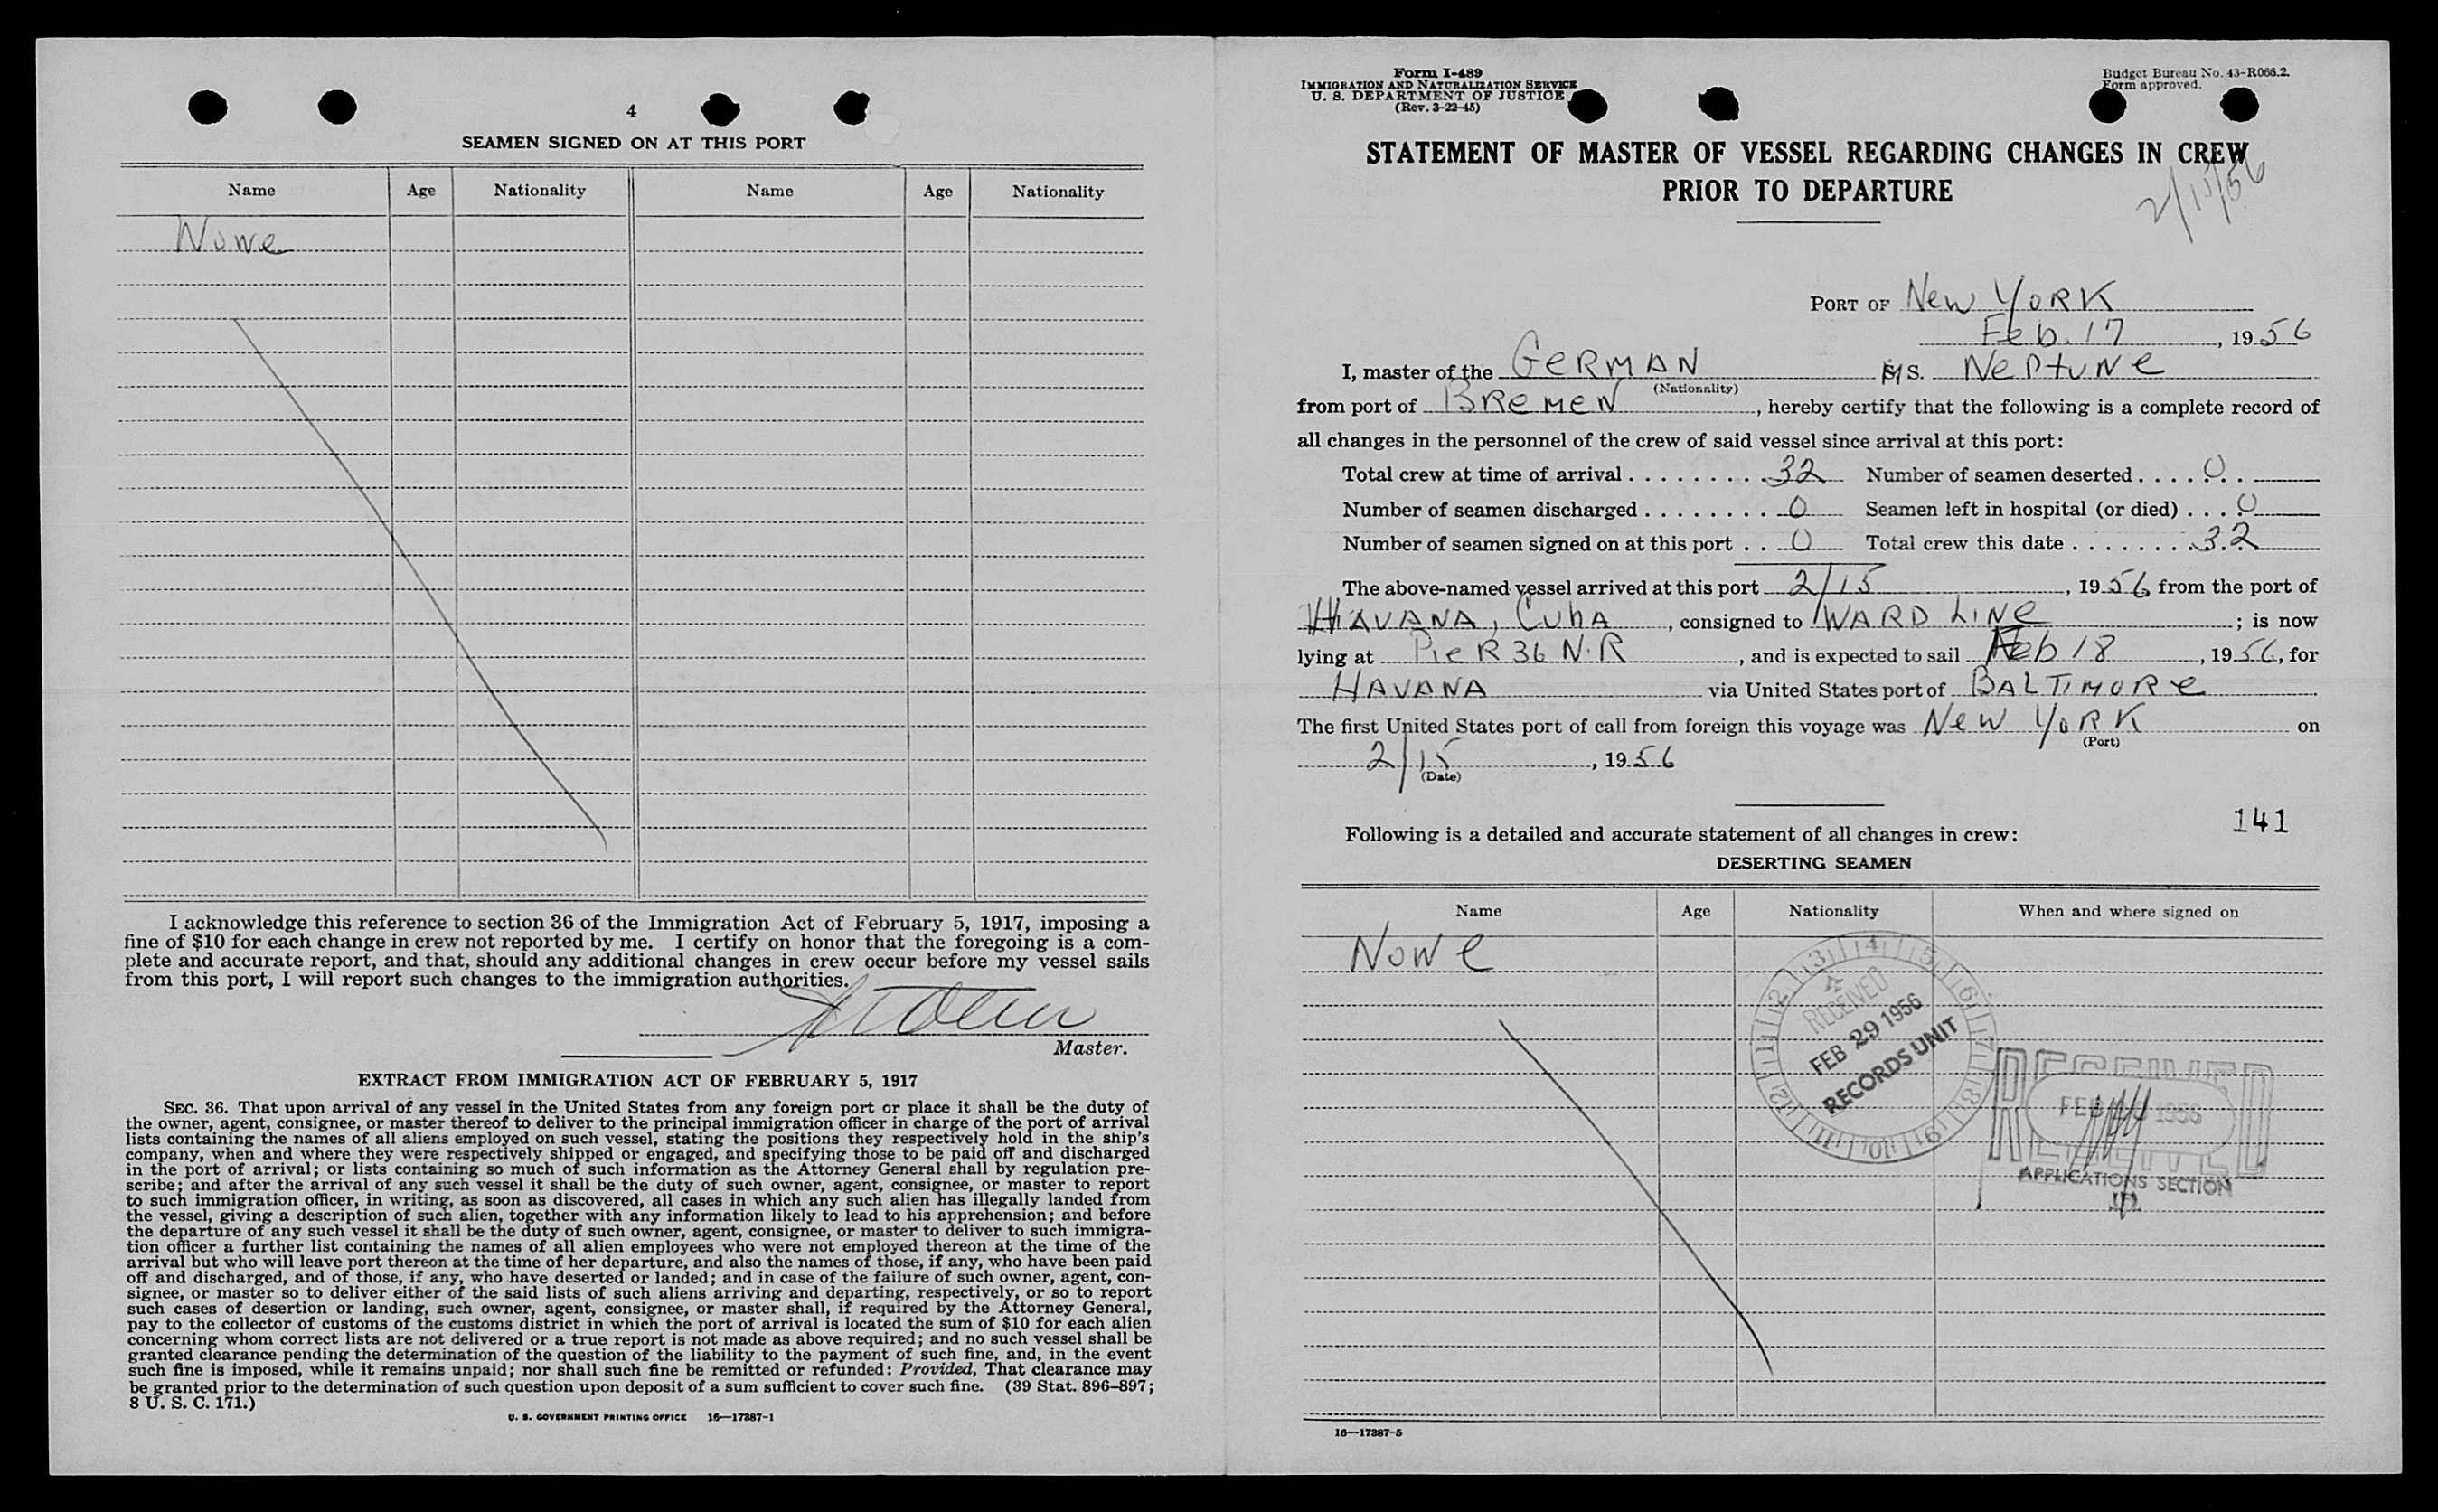 4
SEAMEN SIGNED ON AT THIS PORT
Name Age Nationality Name Age Nationality
Nowe
I acknowledge this reference to section 36 of the Immigration Act of February 5, 1917, imposing a
fine of $10 for each change in crew not reported by me. I certify on honor that the foregoing is a com-
plete and accurate report, and that, should any additional changes in crew occur before my vessel sails
from this port, I will report such changes to the immigration authorities.
Master.
EXTRACT FROM IMMIGRATION ACT OF FEBRUARY 5, 1917
SEC. 36. That upon arrival of any vessel in the United States from any foreign port or place it shall be the duty of
the owner, agent, consignee, or master thereof to deliver to the principal immigration officer in charge of the port of arrival
lists containing the names of all aliens employed on such vessel, stating the positions they respectively hold in the ship's
company, when and where they were respectively shipped or engaged, and specifying those to be paid off and discharged
in the port of arrival; or lists containing so much of such information as the Attorney General shall by regulation pre-
scribe; and after the arrival of any such vessel it shall be the duty of such owner, agent, consignee, or master to report
to such immigration officer, in writing, as soon as discovered, all cases in which any such alien has illegally landed from
the vessel, giving a description of such alien, together with any information likely to lead to his apprehension; and before
the departure of any such vessel it shall be the duty of such owner, agent, consignee, or master to deliver to such immigra-
tion officer a further list containing the names of all alien employees who were not employed thereon at the time of the
arrival but who will leave port thereon at the time of her departure, and also the names of those, if any, who have been paid
off and discharged, and of those, if any, who have deserted or landed; and in case of the failure of such owner, agent, con-
signee, or master so to deliver either of the said lists of such aliens arriving and departing, respectively, or so to report
such cases of desertion or landing, such owner, agent, consignee, or master shall, if required by the Attorney General,
pay to the collector of customs of the customs district in which the port of arrival is located the sum of $10 for each alien
concerning whom correct lists are not delivered or a true report is not made as above required; and no such vessel shall be
granted clearance pending the determination of the question of the liability to the payment of such fine, and, in the event
such fine is imposed, while it remains unpaid; nor shall such fine be remitted or refunded: Provided, That clearance may
be granted prior to the determination of such question upon deposit of a sum sufficient to cover such fine. (39 Stat. 896–897;
8 U. S. C. 171.)
U. S. GOVERNMENT PRINTING OFFICE 16—17387-1
Form I-489
IMMIGRATION AND NATURALIZATION SERVICE
U. S. DEPARTMENT OF JUSTICE
(Rev. 3-22-45)
Budget Bureau No. 43-R066.2.
Form approved.
STATEMENT OF MASTER OF VESSEL REGARDING CHANGES IN CREW
PRIOR TO DEPARTURE
2/15/56
PORT OF New YORK
Feb. 17, 1956
I, master of the GERMAN MS. Neptune
(Nationality)
from port of BREMEN, hereby certify that the following is a complete record of
all changes in the personnel of the crew of said vessel since arrival at this port:
Total crew at time of arrival 32 Number of seamen deserted 0
Number of seamen discharged 0 Seamen left in hospital (or died) 0
Number of seamen signed on at this port 0 Total crew this date 32
The above-named vessel arrived at this port 2/15, 1956, from the port of
HAVANA, Cuba, consigned to WARD LINE; is now
lying at Pier 36 N.R, and is expected to sail Feb 18, 1956, for
HAVANA via United States port of BALTIMORE
The first United States port of call from foreign this voyage was New YORK on
(Port)
2/15, 1956
(Date)
141
Following is a detailed and accurate statement of all changes in crew:
DESERTING SEAMEN
Name Age Nationality When and where signed on
Nowe
1 2 3 4 5 6 7 8 9 10 11 12
RECEIVED
FEB 29 1956
RECORDS UNIT
RECEIVED
FEB 1956
RECEIVED
APPLICATIONS SECTION
16—17387-5